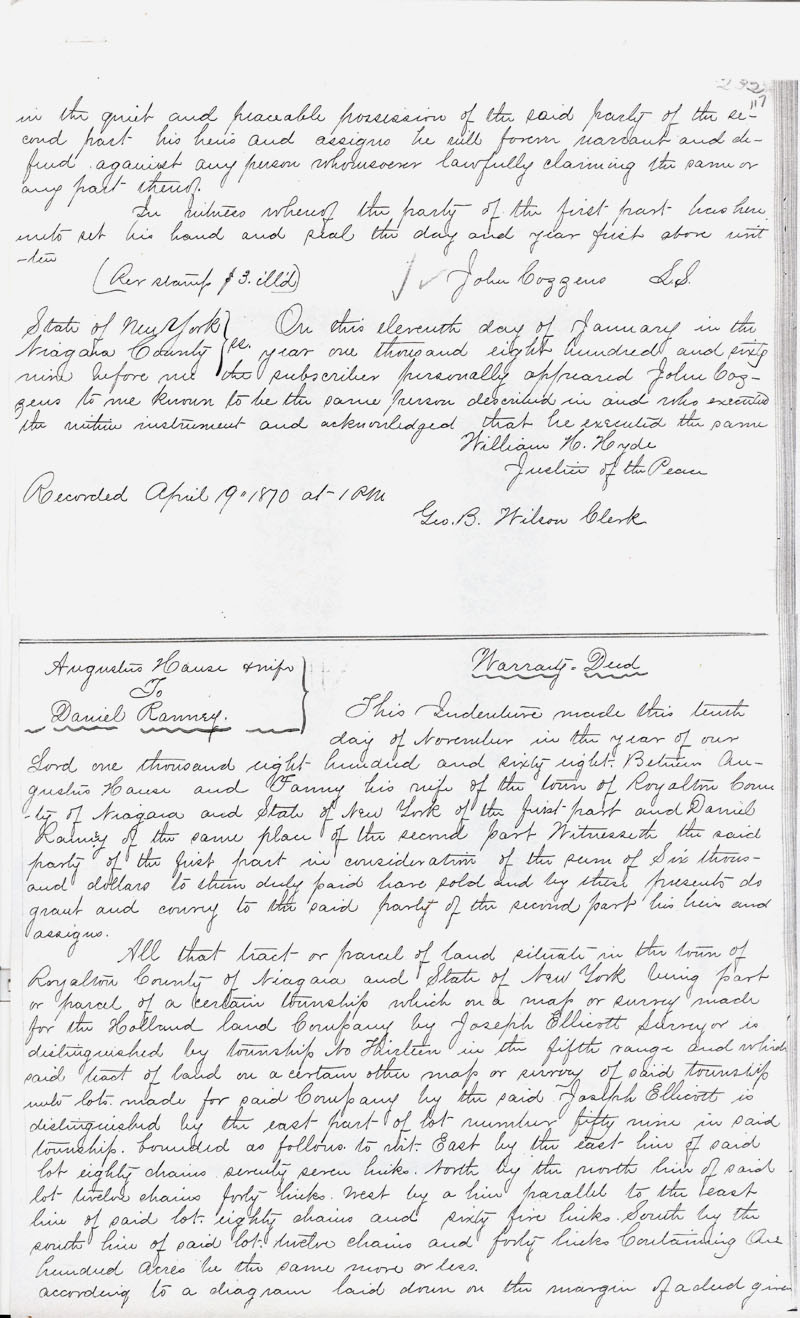 232
117
in the quiet and peaceable possession of the said party of the se-
cond part his heirs and assigns he will forever warrant and de-
fend against any person whomsoever lawfully claiming the same or
any part thereof.
In witness whereof the party of the first part has here
unto set his hand and seal the day and year first above writ
-ten
(Rev stamp $3. ill'd) John Cozzens L.S.
State of New York } On this eleventh day of January in the
Niagara County } ss. year one thousand eight hundred and sixty
nine before me the subscriber personally appeared John Coz-
zens to me known to be the same person described in and who executed
the within instrument and acknowledged that he executed the same
William H. Hyde
Justice of the Peace
Recorded April 19" 1870 at 1 PM
Geo. B. Wilson Clerk
Augustus Hause & wife
To
Daniel Ranney.
Warranty-Deed
This Indenture made this tenth
day of November in the year of our
Lord one thousand eight hundred and sixty eight. Between Au-
gustus Hause and Fanny his wife of the town of Royalton Coun
-ty of Niagara and State of New York of the first part and Daniel
Ranney of the same place of the second part Witnesseth the said
party of the first part in consideration of the sum of Six thous-
and dollars to them duly paid have sold and by these presents do
grant and convey to the said party of the second part his heirs and
assigns.
All that tract or parcel of land situate in the town of
Royalton County of Niagara and State of New York being part
or parcel of a certain township which on a map or survey made
for the Holland land Company by Joseph Ellicott Surveyor is
distinguished by township No Thirteen in the fifth range and which
said tract of land on a certain other map or survey of said township
into lots made for said Company by the said Joseph Ellicott is
distinguished by the east part of lot number fifty nine in said
township. bounded as follows. to wit. East by the east line of said
lot eighty chains seventy seven links. North by the north line of said
lot twelve chains forty links. West by a line parallel to the east
line of said lot. eighty chains and sixty five links. South by the
south line of said lot. twelve chains and forty links Containing One
hundred Acres be the same more or less.
according to a diagram laid down on the margin of a deed given